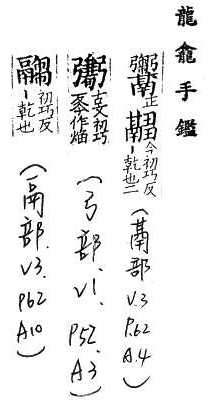 龍龕手鑑
正
今初巧反
乾也二
(鬲部.
V.3
P.62
A.4)
古文初巧
反今作煼
(弓部.
V1.
P52.
A3)
初巧反
乾也
(鬲部.
V3.
P62
A10)